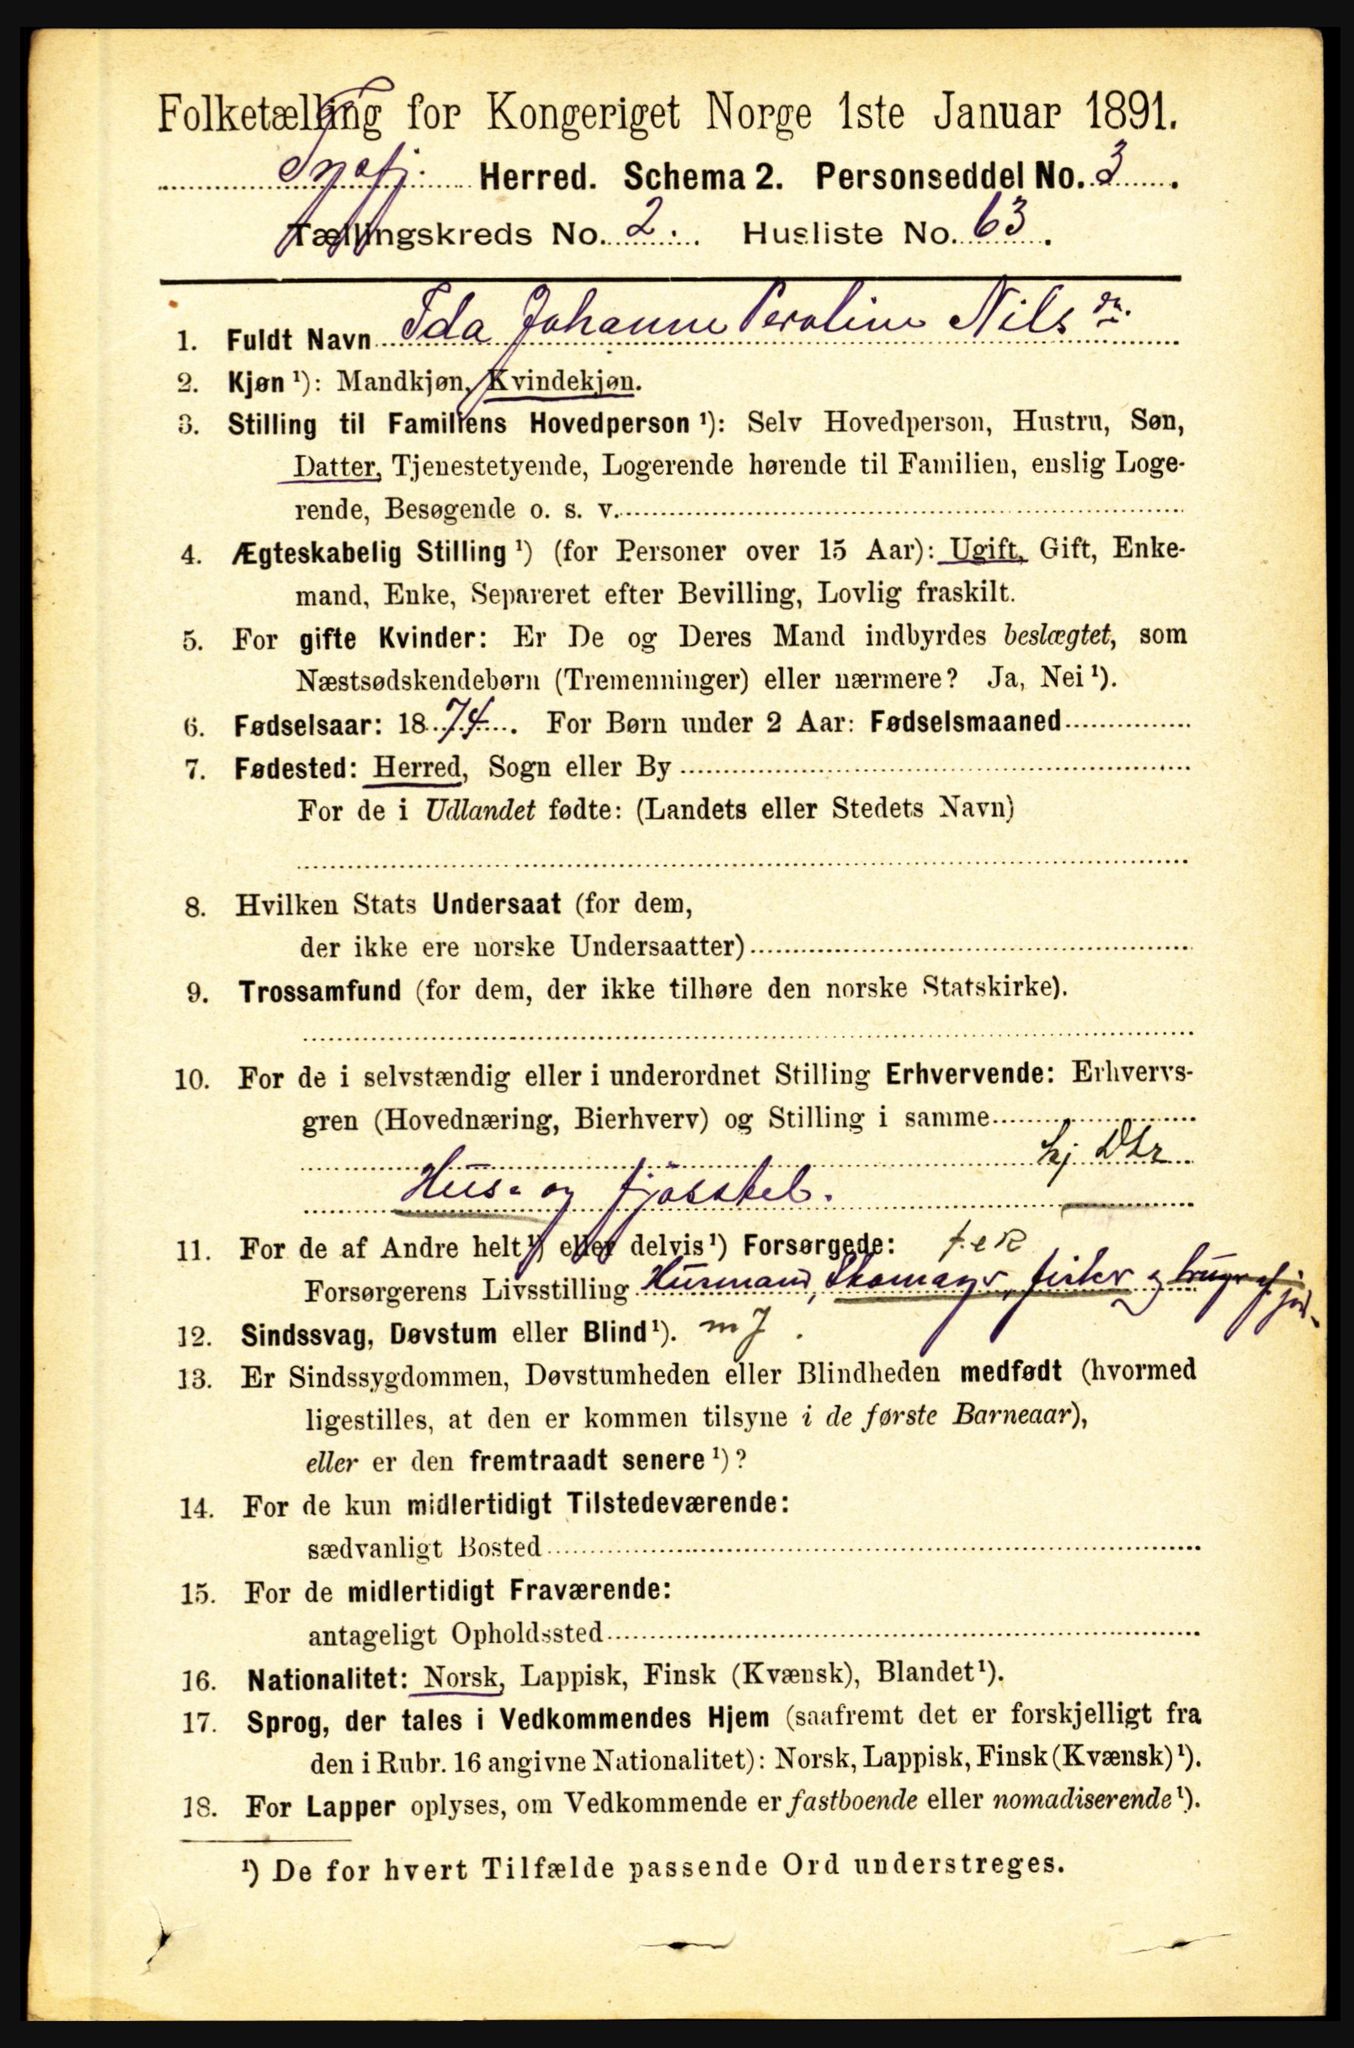 Folketælling for Kongeriget Norge 1ste Januar 1891.
Herred. Schema 2. Personseddel No. 3.
Tællingskreds No. 2. Husliste No. 63.
1. Fuldt Navn Ida Johanne Peroline Nilsdr.
2. Kjøn ¹): Mandkjøn, Kvindekjøn.
3. Stilling til Familiens Hovedperson ¹): Selv Hovedperson, Hustru, Søn,
Datter, Tjenestetyende, Logerende hørende til Familien, enslig Loge-
rende, Besøgende o. s. v.
4. Ægteskabelig Stilling ¹) (for Personer over 15 Aar): Ugift, Gift, Enke-
mand, Enke, Separeret efter Bevilling, Lovlig fraskilt.
5. For gifte Kvinder: Er De og Deres Mand indbyrdes beslægtet, som
Næstsødskendebørn (Tremenninger) eller nærmere? Ja, Nei ¹).
6. Fødselsaar: 1874. For Børn under 2 Aar: Fødselsmaaned
7. Fødested: Herred, Sogn eller By
For de i Udlandet fødte: (Landets eller Stedets Navn)
8. Hvilken Stats Undersaat (for dem,
der ikke ere norske Undersaatter)
9. Trossamfund (for dem, der ikke tilhøre den norske Statskirke).
10. For de i selvstændig eller i underordnet Stilling Erhvervende: Erhvervs-
gren (Hovednæring, Bierhverv) og Stilling i samme
hj Dtr
Hus- og fjösstel.
11. For de af Andre helt ¹) eller delvis ¹) Forsørgede:
Forsørgerens Livsstilling Husmand, Skomager, fisker og bruger af jord
12. Sindssvag, Døvstum eller Blind ¹).
13. Er Sindssygdommen, Døvstumheden eller Blindheden medfødt (hvormed
ligestilles, at den er kommen tilsyne i de første Barneaar),
eller er den fremtraadt senere ¹)?
14. For de kun midlertidigt Tilstedeværende:
sædvanligt Bosted
15. For de midlertidigt Fraværende:
antageligt Opholdssted
16. Nationalitet: Norsk, Lappisk, Finsk (Kvænsk), Blandet ¹).
17. Sprog, der tales i Vedkommendes Hjem (saafremt det er forskjelligt fra
den i Rubr. 16 angivne Nationalitet): Norsk, Lappisk, Finsk (Kvænsk) ¹).
18. For Lapper oplyses, om Vedkommende er fastboende eller nomadiserende ¹).
¹) De for hvert Tilfælde passende Ord understreges.